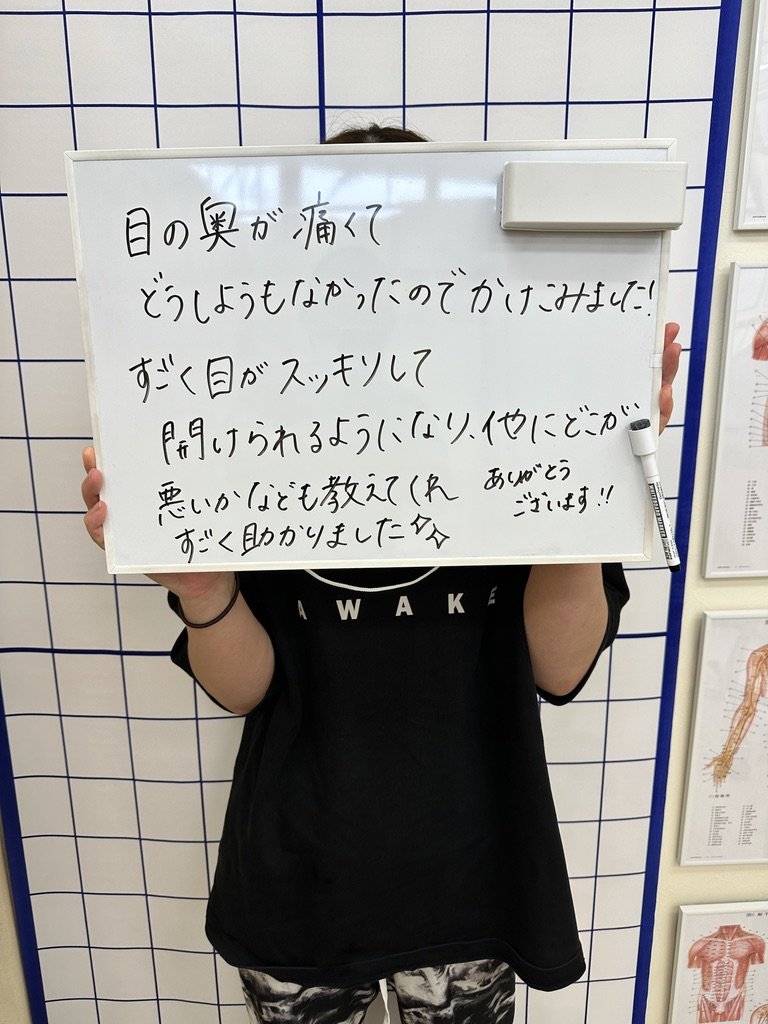 目の奥が痛くて
どうしようもなかったのでかけこみました!
すごく目がスッキリして
開けられるようになり、他にどこが
悪いかなども教えてくれ
すごく助かりました
ありがとう
ございます!!
AWAKE